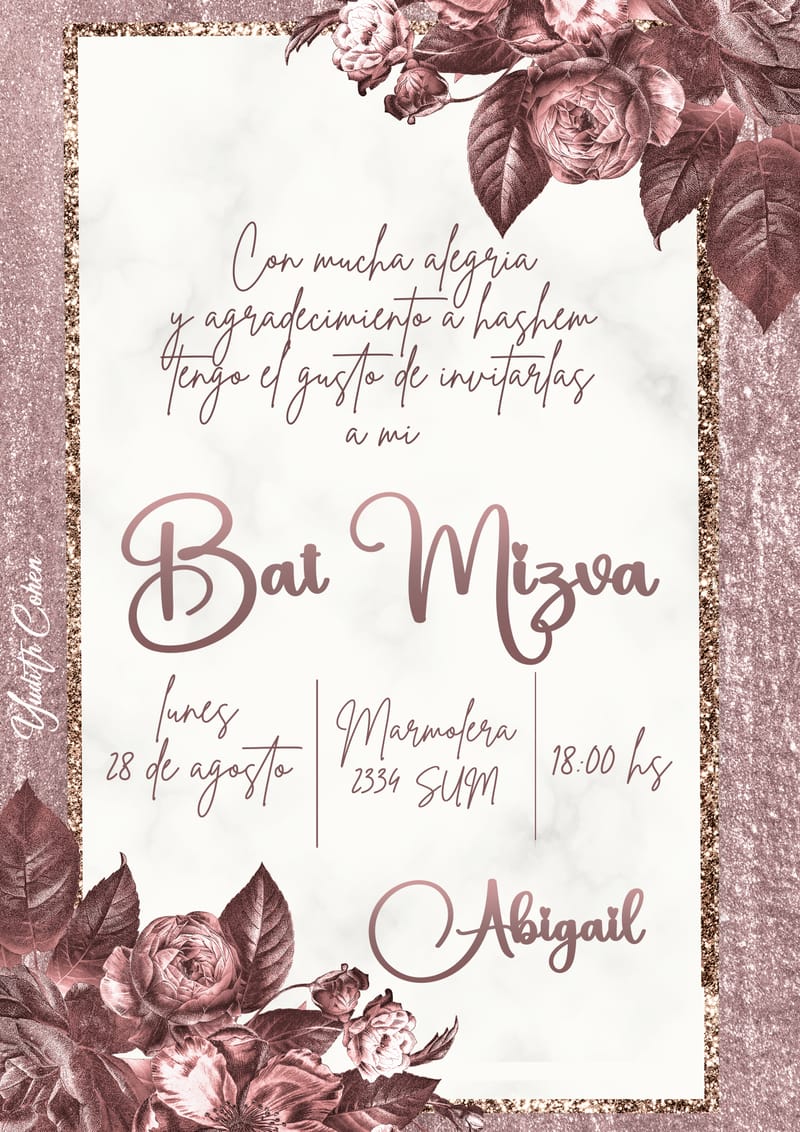 Con mucha alegria
y agradecimiento a hashem
tengo el gusto de invitarlas
a mi
Bat Mizva
lunes
28 de agosto
Marmolera
2334 SUM
18:00 hs
Abigail
Yudith Cohen